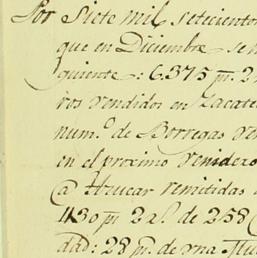 Por Siete mil setecientos
que en Diciembre se
guiente: 6.375 p.s 2
ros vendidos en Zacate
num.o de Borregas ve
en el proximo venidero
@ Azucar remitidas a
1130 p.s 2 a.s de 258
dad: 28 p.s de una